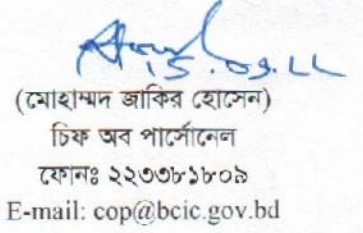 ১৫.০৩.২২
(মোহাম্মদ জাকির হোসেন)
চিফ অব পার্সোনেল
ফোনঃ ২২৩৩৮১৮০৯
E-mail: cop@bcic.gov.bd